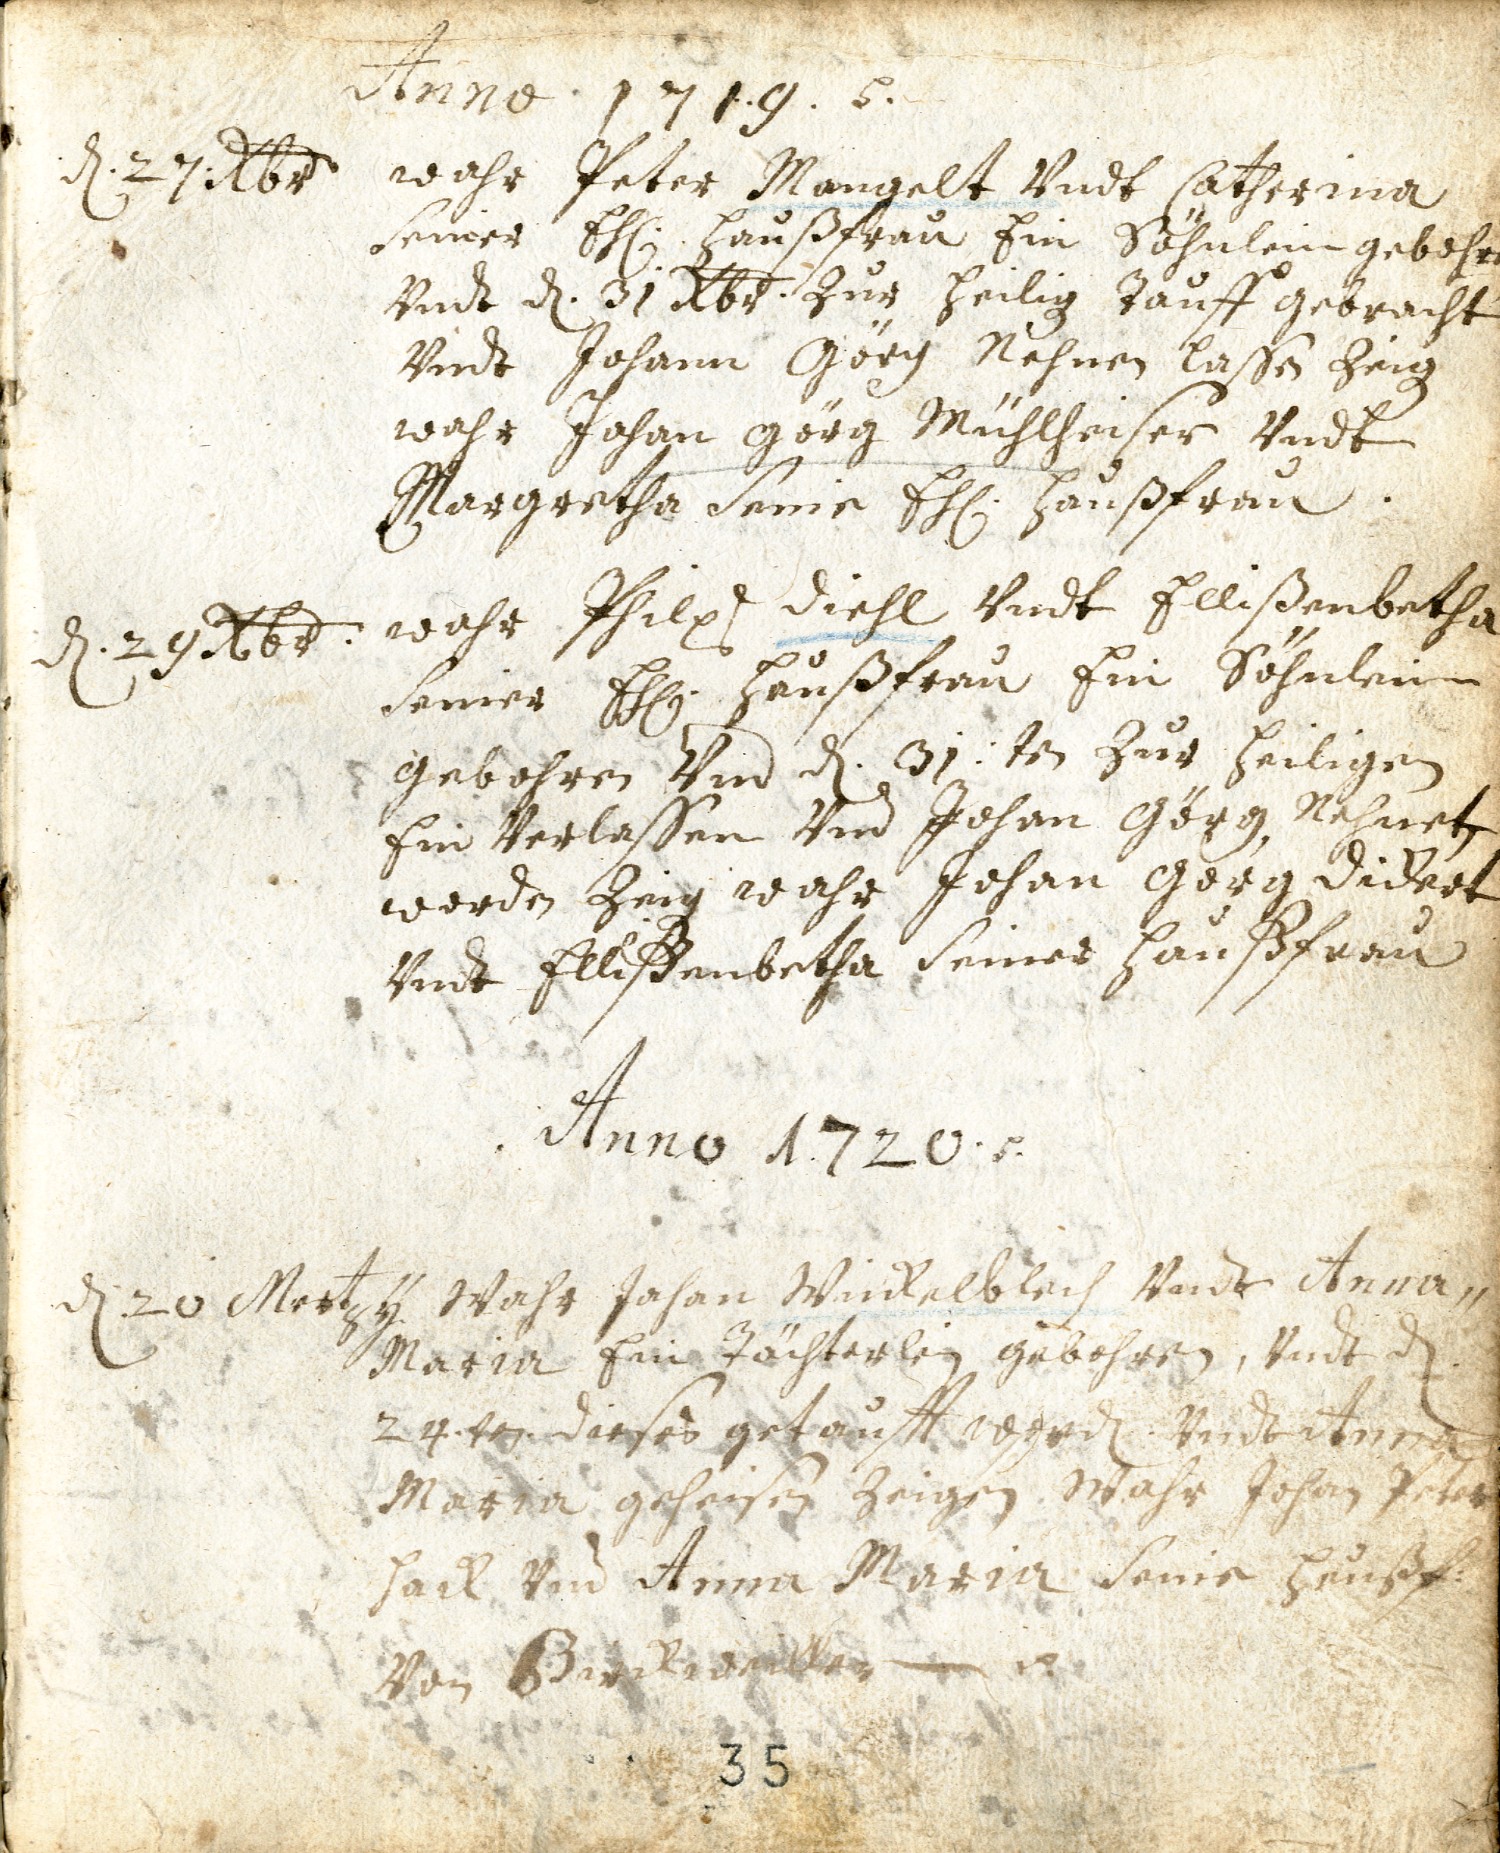 Anno 1719.
d. 27. Xbr wahr Peter Mangelt Vndt Catherina
seiner Ehl. Haußfrau Ein Söhnlein gebohren
Vndt d. 31 Xbr. Zur Heilig Tauff gebracht
Vndt Johann Görg Nehnen lassen Zeig
wahr Johan Görg Mühlheiser Vndt
Margretha seine Ehl. Haußfrau.
d. 29 Xbr. wahr Philps Diehl Vndt Ellißenbetha
seiner Ehl. Haußfrau Ein Söhnlein
gebohren Vnd d. 31.ten Zur Heiligen
Ein Verlassen Vnd Johan Görg Nehnet
werden Zeig wahr Johan Görg
Vndt Ellißenbetha seiner Haußfrau
Anno 1720.
d. 20 Mertz Wahr Johan Winckelblech Vndt Anna
Maria Ein Töchterlein gebohren, Vndt d.
24.ten dieses getaufft Vndt Anna
Maria geheisen Zeigen Wahr Johan Peter
Hack Vnd Anna Maria seine Haußf.
Von Birckweiller
35